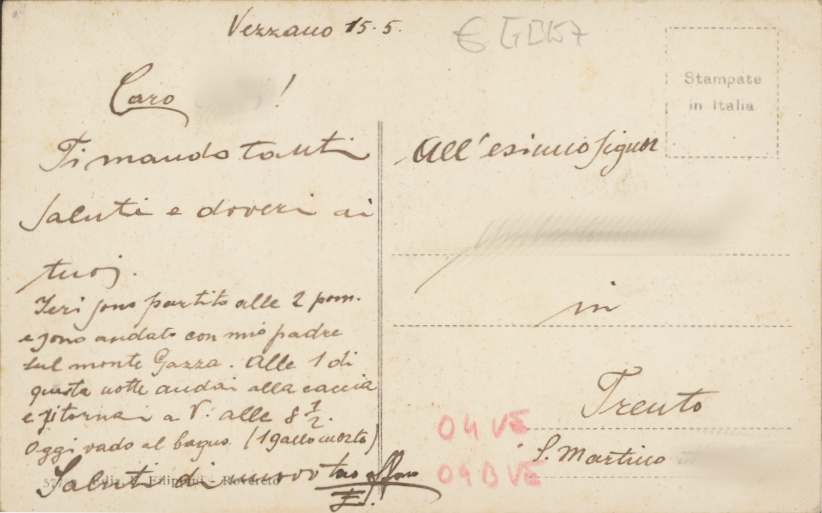 Vezzano 15.5.
€ GB157
Stampate
in Italia
Caro !
Ti mando tanti
saluti e doveri ai
tuoi.
Ieri sono partito alle 2 pom.
e sono andato con mio padre
sul monte Gazza. Alle 1 di
questa notte andai alla caccia
e ritornai a V. alle 8 1/2.
Oggi vado al bagno (1 gallo morto)
Saluti di nuovo tuo aff
577 Ediz. F. Filippini - Rovereto
All'esimio Signor
in
Trento
S. Martino
04 VE
04 B VE